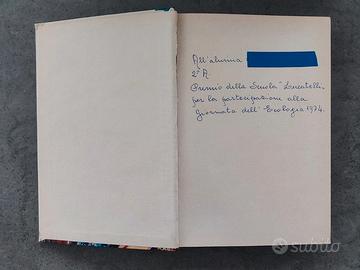 All'alunna
2ª A.
Premio della Scuola "Lucatelli"
per la partecipazione alla
Giornata dell'Ecologia 1974.
subito